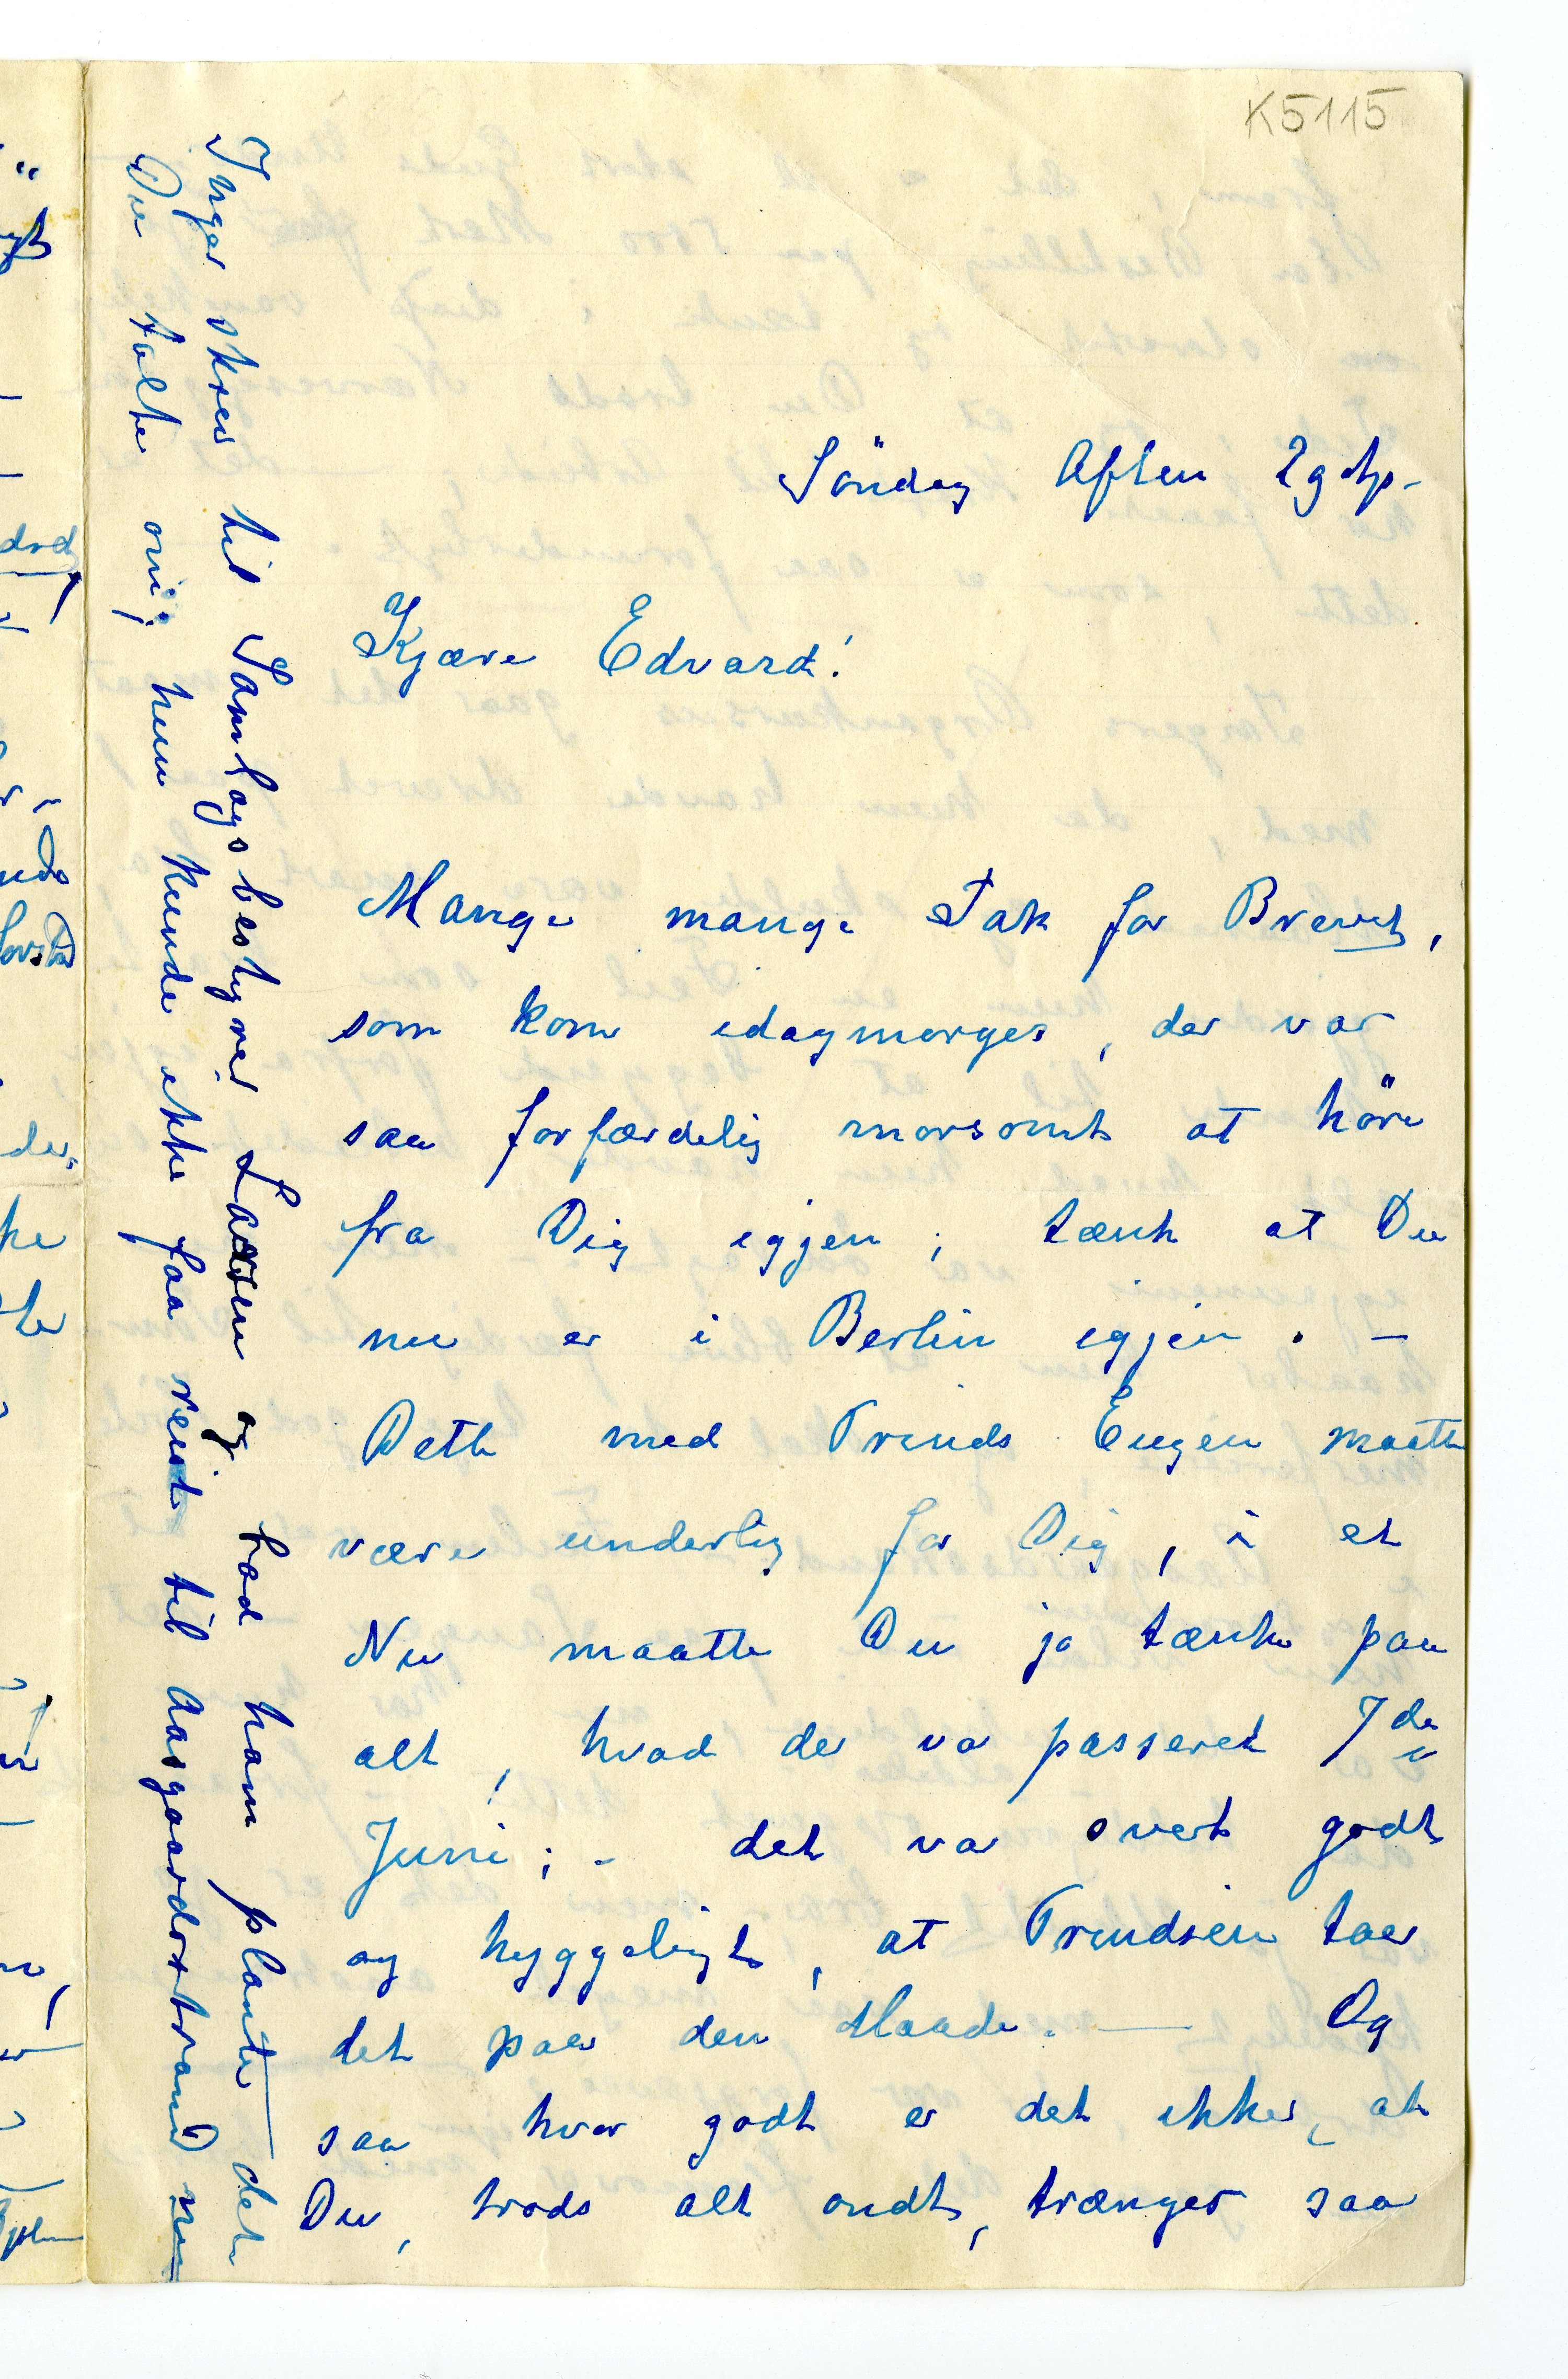 K5115
Söndag Aften 29 Ap.
Kjære Edvard!
Mange mange Tak for Brevet,
som kom idagmorges, der var
saa forfærdelig morsomt at höre
fra Dig igjen; tænk at Du
nu er i Berlin igjen. –
Dette med Prinds Eugen maatte
være underlig for Dig, i et
Nu maatte Du jo tænke paa
alt, hvad der va passeret 7de
Juni; - det va svert godt
og hyggeligt, at Prindsen taer
det paa den Maade. — Og
saa hvor godt er det ikke, at
Du, trods alt ondt, trænger saa
Inger skrev til Samlagsbestyrer Larsen og bad ham plante – det
Du talte om; hun kunde ikke faa reist til Aasgaardostrand nu